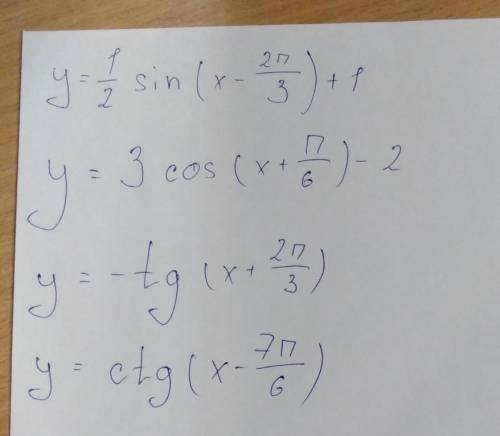 y = 1/2 sin (x - 2π/3) + 1
y = 3 cos (x + π/6) - 2
y = -tg (x + 2π/3)
y = ctg (x - 7π/6)